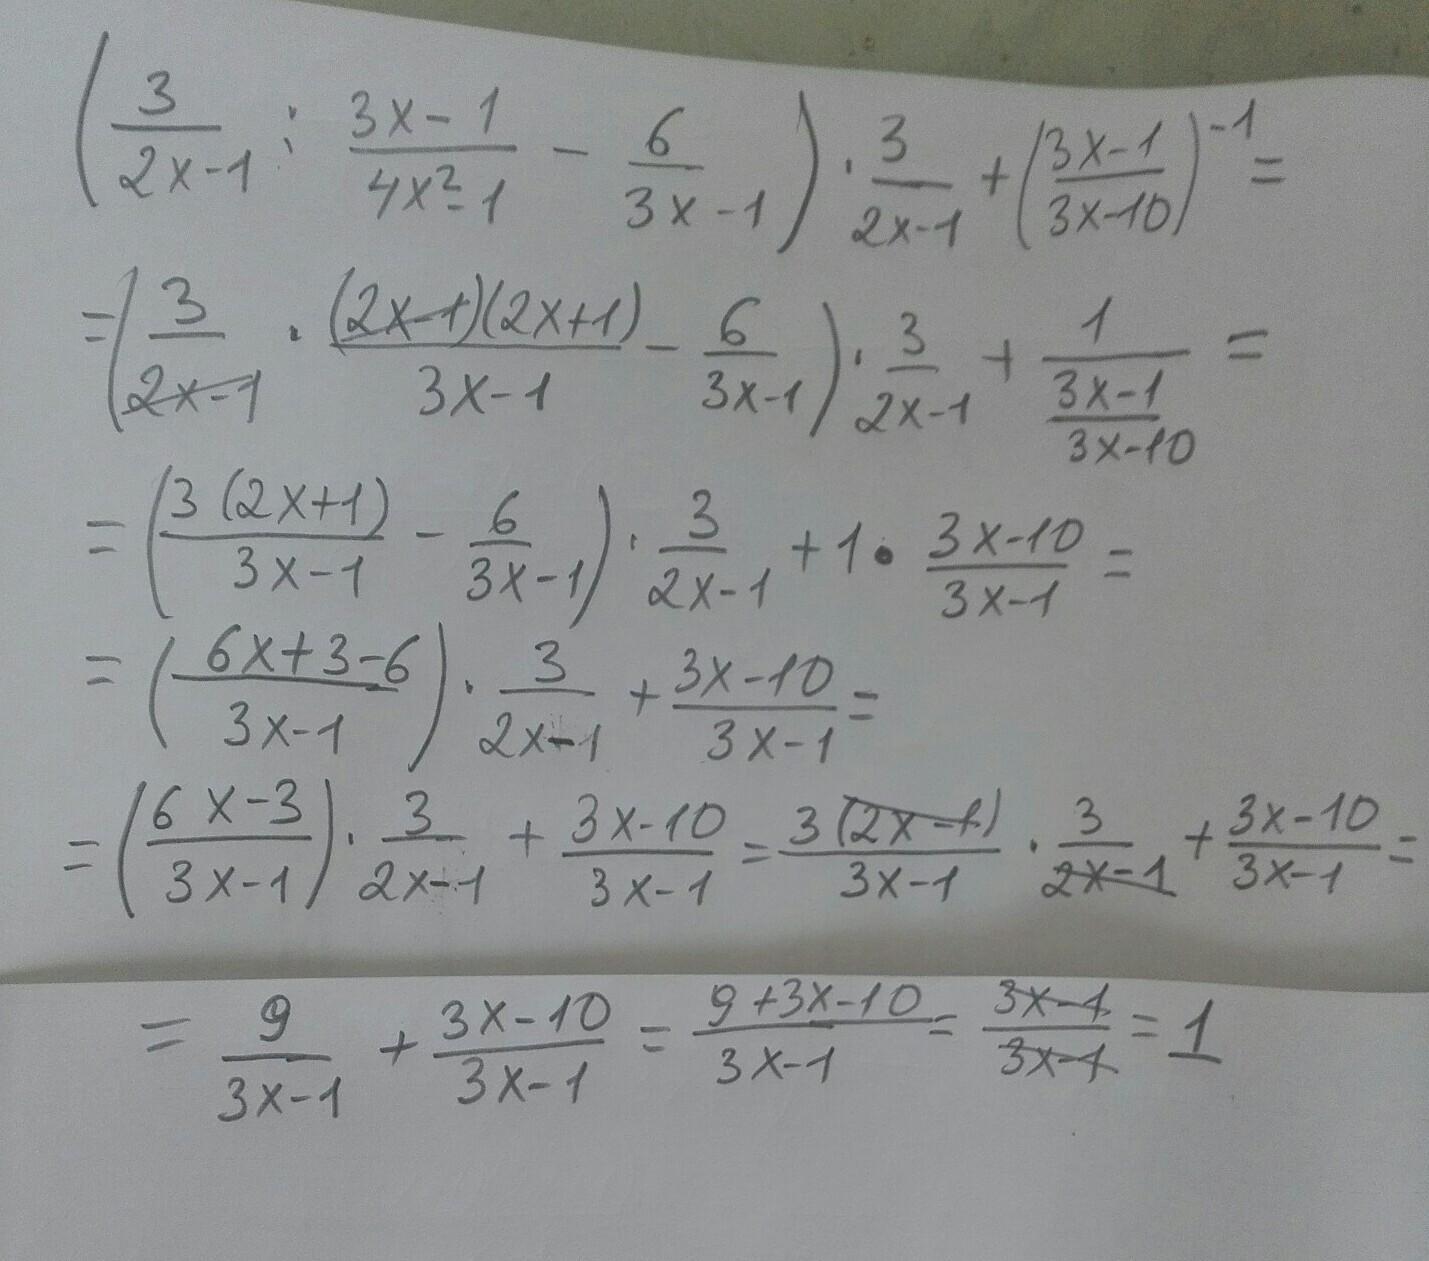 (3/(2x-1) : (3x-1)/(4x²-1) - 6/(3x-1)) · 3/(2x-1) + ((3x-1)/(3x-10))⁻¹ =
= (3/(2x-1) · (2x-1)(2x+1)/(3x-1) - 6/(3x-1)) · 3/(2x-1) + 1/((3x-1)/(3x-10)) =
= (3(2x+1)/(3x-1) - 6/(3x-1)) · 3/(2x-1) + 1 · (3x-10)/(3x-1) =
= ((6x+3-6)/(3x-1)) · 3/(2x-1) + (3x-10)/(3x-1) =
= ((6x-3)/(3x-1)) · 3/(2x-1) + (3x-10)/(3x-1) = 3(2x-1)/(3x-1) · 3/(2x-1) + (3x-10)/(3x-1) =
= 9/(3x-1) + (3x-10)/(3x-1) = (9+3x-10)/(3x-1) = (3x-1)/(3x-1) = 1